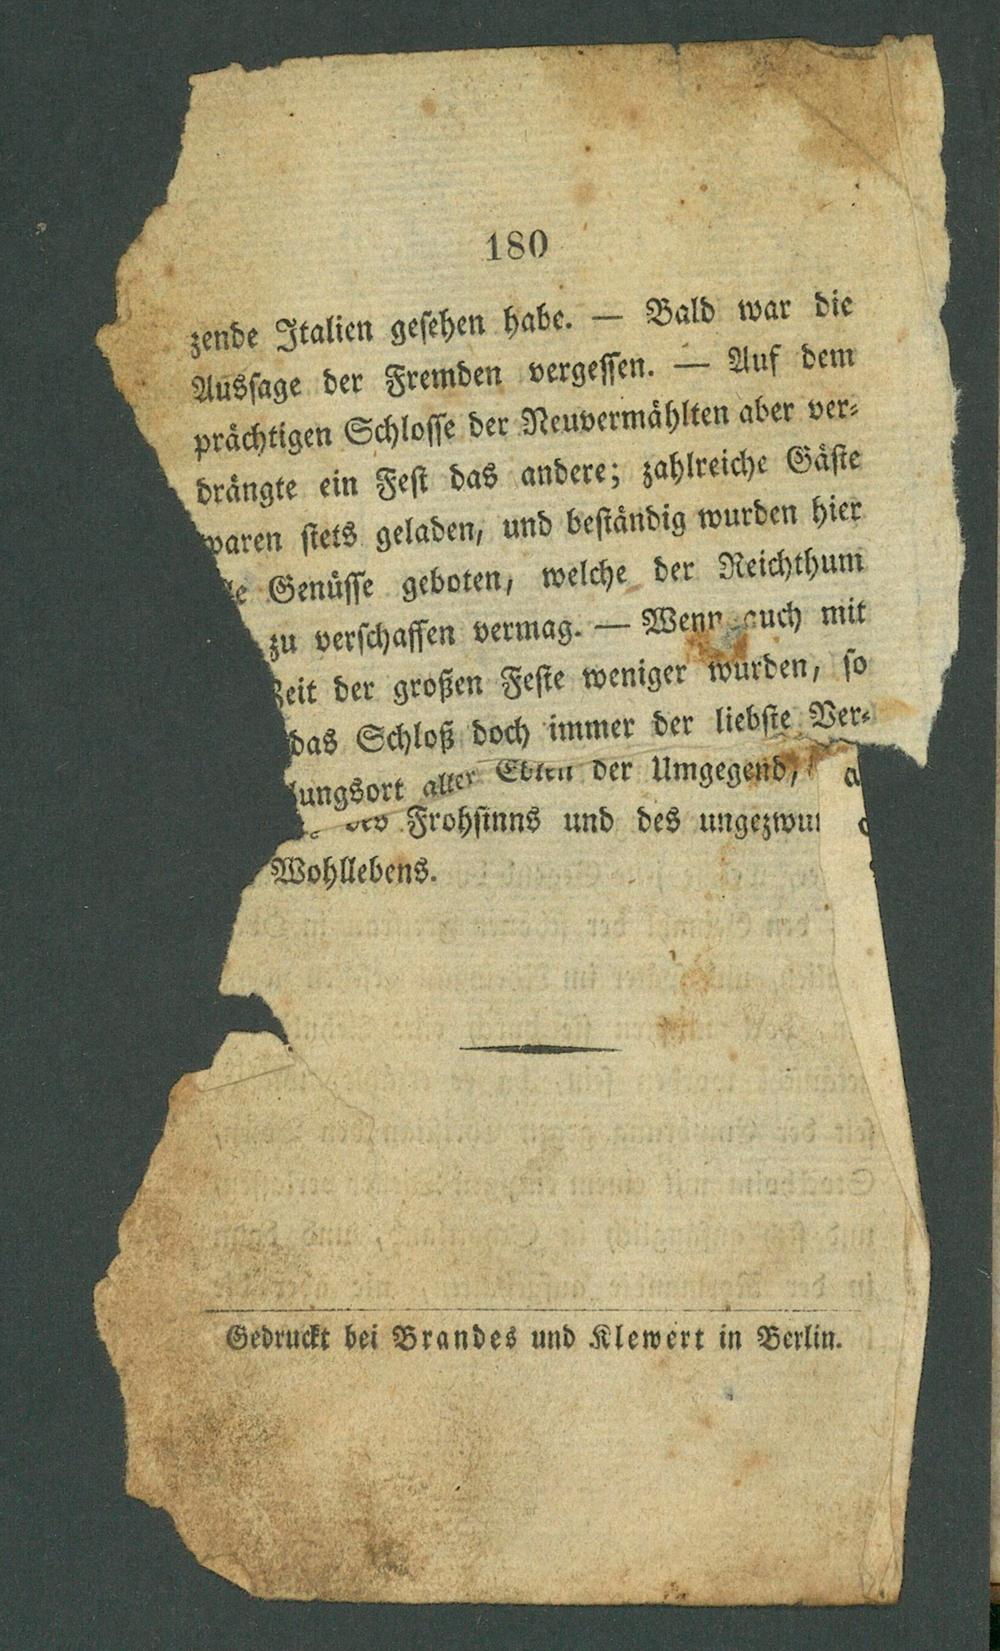 180
zende Italien geſehen habe. — Bald war die
Ausſage der Fremden vergeſſen. — Auf dem
prächtigen Schloſſe der Neuvermählten aber ver⸗
drängte ein Feſt das andere; zahlreiche Gäſte
waren ſtets geladen, und beſtändig wurden hier
le Genüſſe geboten, welche der Reichthum
zu verſchaffen vermag. — Wenn auch mit
Zeit der großen Feſte weniger wurden, ſo
das Schloß doch immer der liebſte Ver⸗
lungsort aller Edlen der Umgegend, a
des Frohſinns und des ungezwun
Wohllebens.
Gedruckt bei Brandes und Klewert in Berlin.